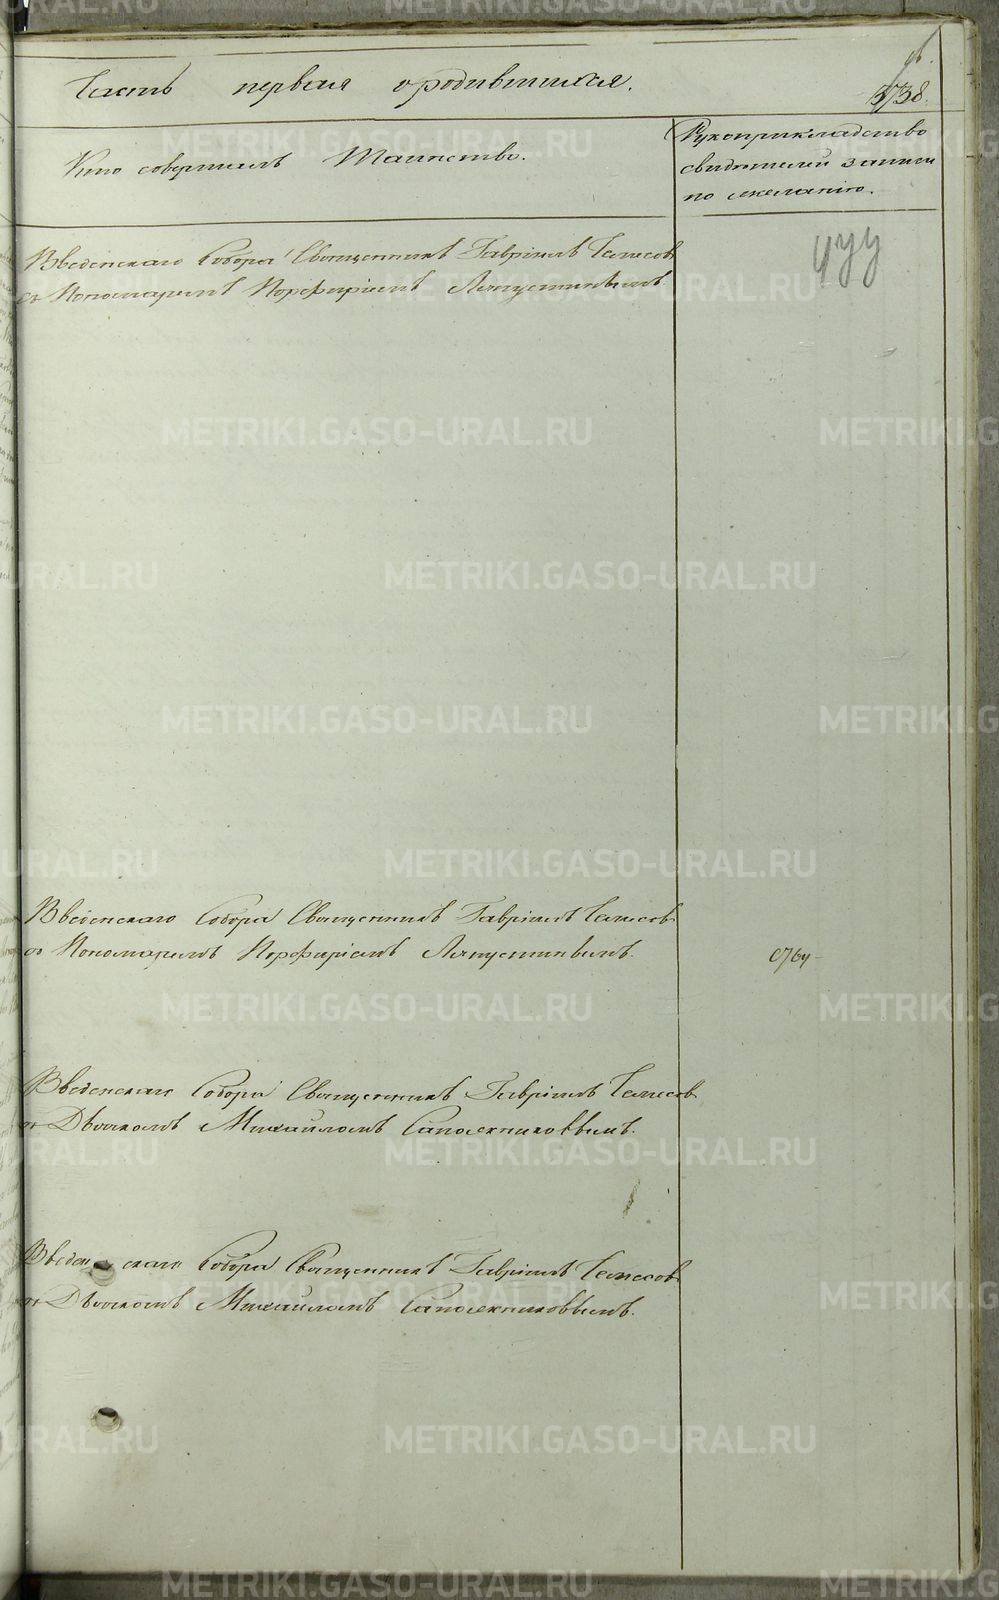 Часть первая о родившихся.
738.
Кто совершалъ Таинство.
Рукоприкладство
свидѣтелей записи
по желанію.
Введенскаго Собора Священникъ Гавріилъ
съ Пономаремъ Порфиріемъ Ляпустинымъ
Введенскаго Собора Священникъ Гавріилъ
съ Пономаремъ Порфиріемъ Ляпустинымъ.
Введенскаго Собора Священникъ Гавріилъ
съ Діакономъ Михаиломъ Сапожниковымъ.
Введенскаго Собора Священникъ Гавріилъ
съ Діакономъ Михаиломъ Сапожниковымъ.
METRIKI.GASO-URAL.RU